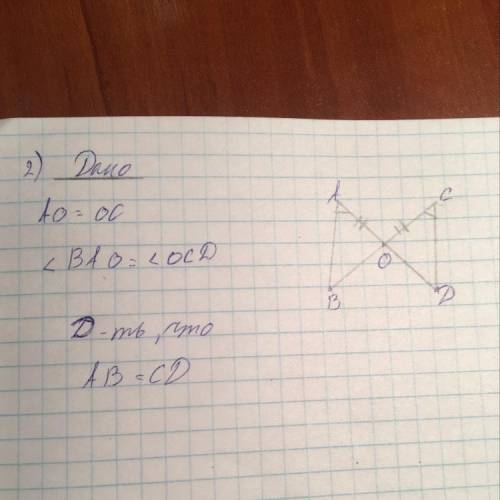 2) Дано
АО = ОС
∠BAO = ∠OCD
D-ть, что
AB = CD
A C
O
B D